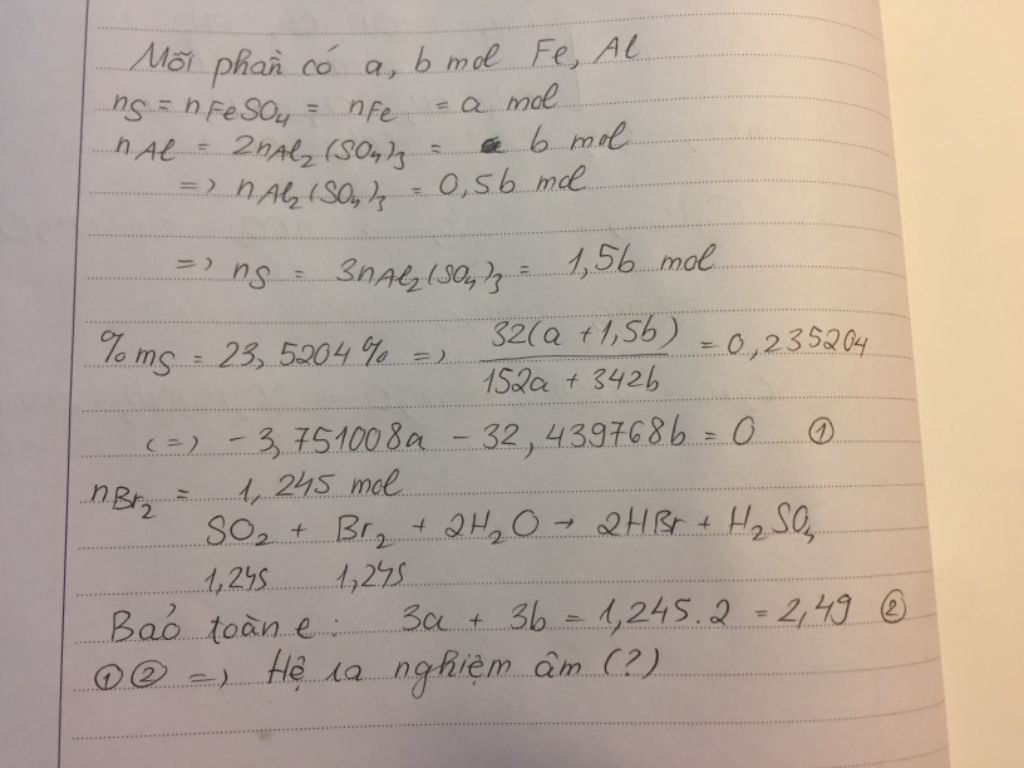 Mỗi phần có a, b mol Fe, Al
nS = nFeSO4 = nFe = a mol
nAl = 2nAl2(SO4)3 = b mol
=> nAl2(SO4)3 = 0,5b mol
=> nS = 3nAl2(SO4)3 = 1,5b mol
%mS = 23,5204% => 32(a + 1,5b) / 152a + 342b = 0,235204
(=) -3,751008a - 32,439768b = 0 ①
nBr2 = 1,245 mol
SO2 + Br2 + 2H2O → 2HBr + H2SO4
1,245 1,245
Bảo toàn e: 3a + 3b = 1,245.2 = 2,49 ②
①② => Hệ ra nghiệm âm (?)